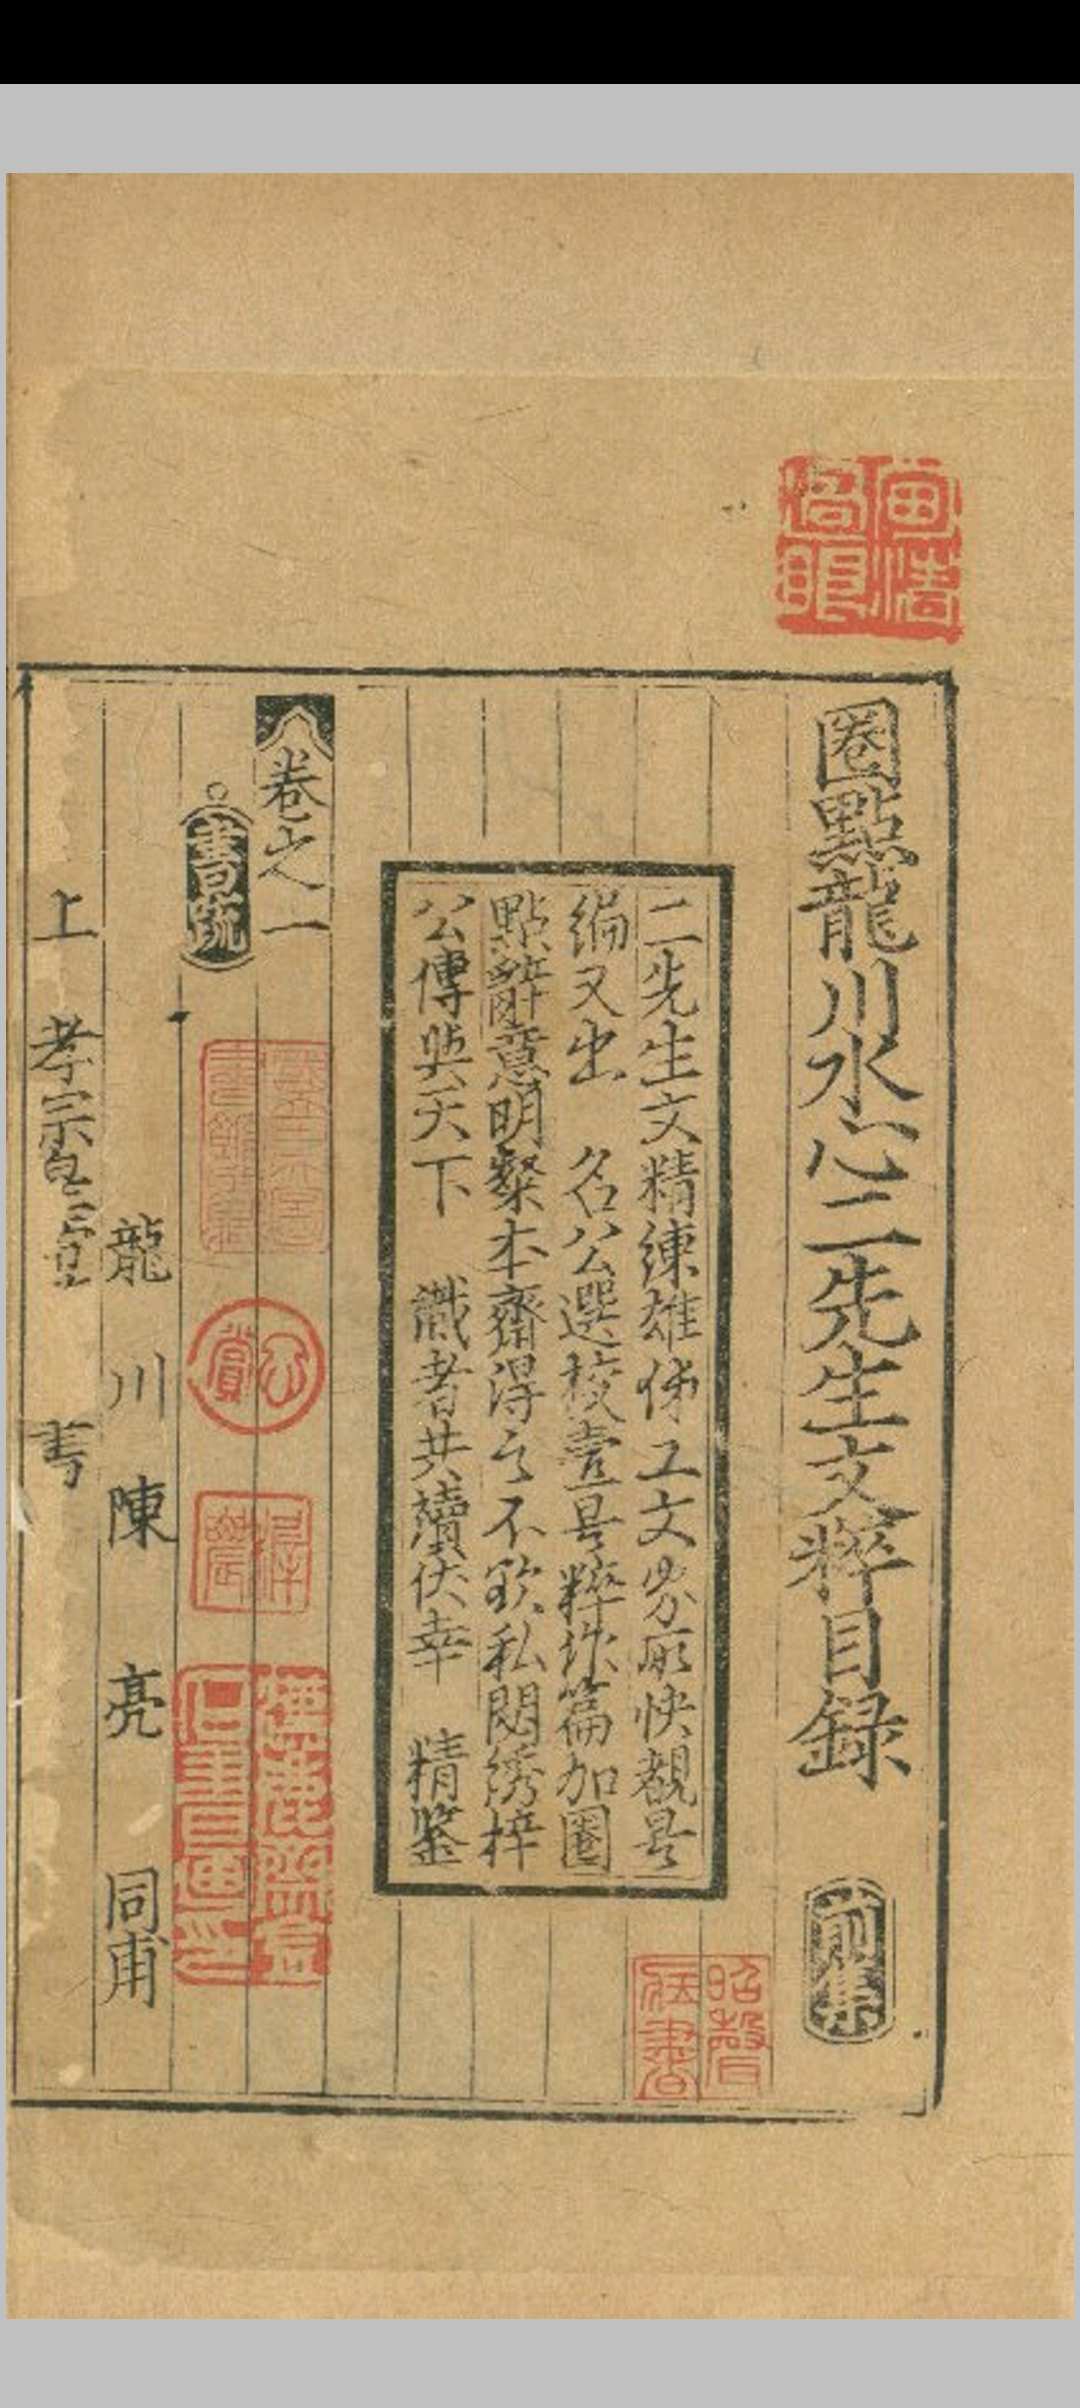 圈點龍川水心二先生文粹目録 前集
二先生文精練雄偉工文者所快覩是
編又出 名公選校壹是粹作篇加圈
點辭意明粲本齋得之不欲私閟綉梓
公傳與天下 識者共讀伏幸 精鑒
卷之一
書疏
龍川陳亮同甫
上孝宗皇帝書
昭聲
公賞